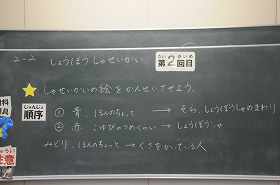 2-2 しょうぼうしゃせいかい 第2回目
たい かいめ
しゃせいかいの絵をかんせいさせよう。
じゅんじょ
順序
① 青、ほんのちょっと → そら、しょうぼうしゃのまわり
② 赤、こゆびのつめくらい → しょうぼうしゃ
みどり、ほんのちょっと → くさをかいている人